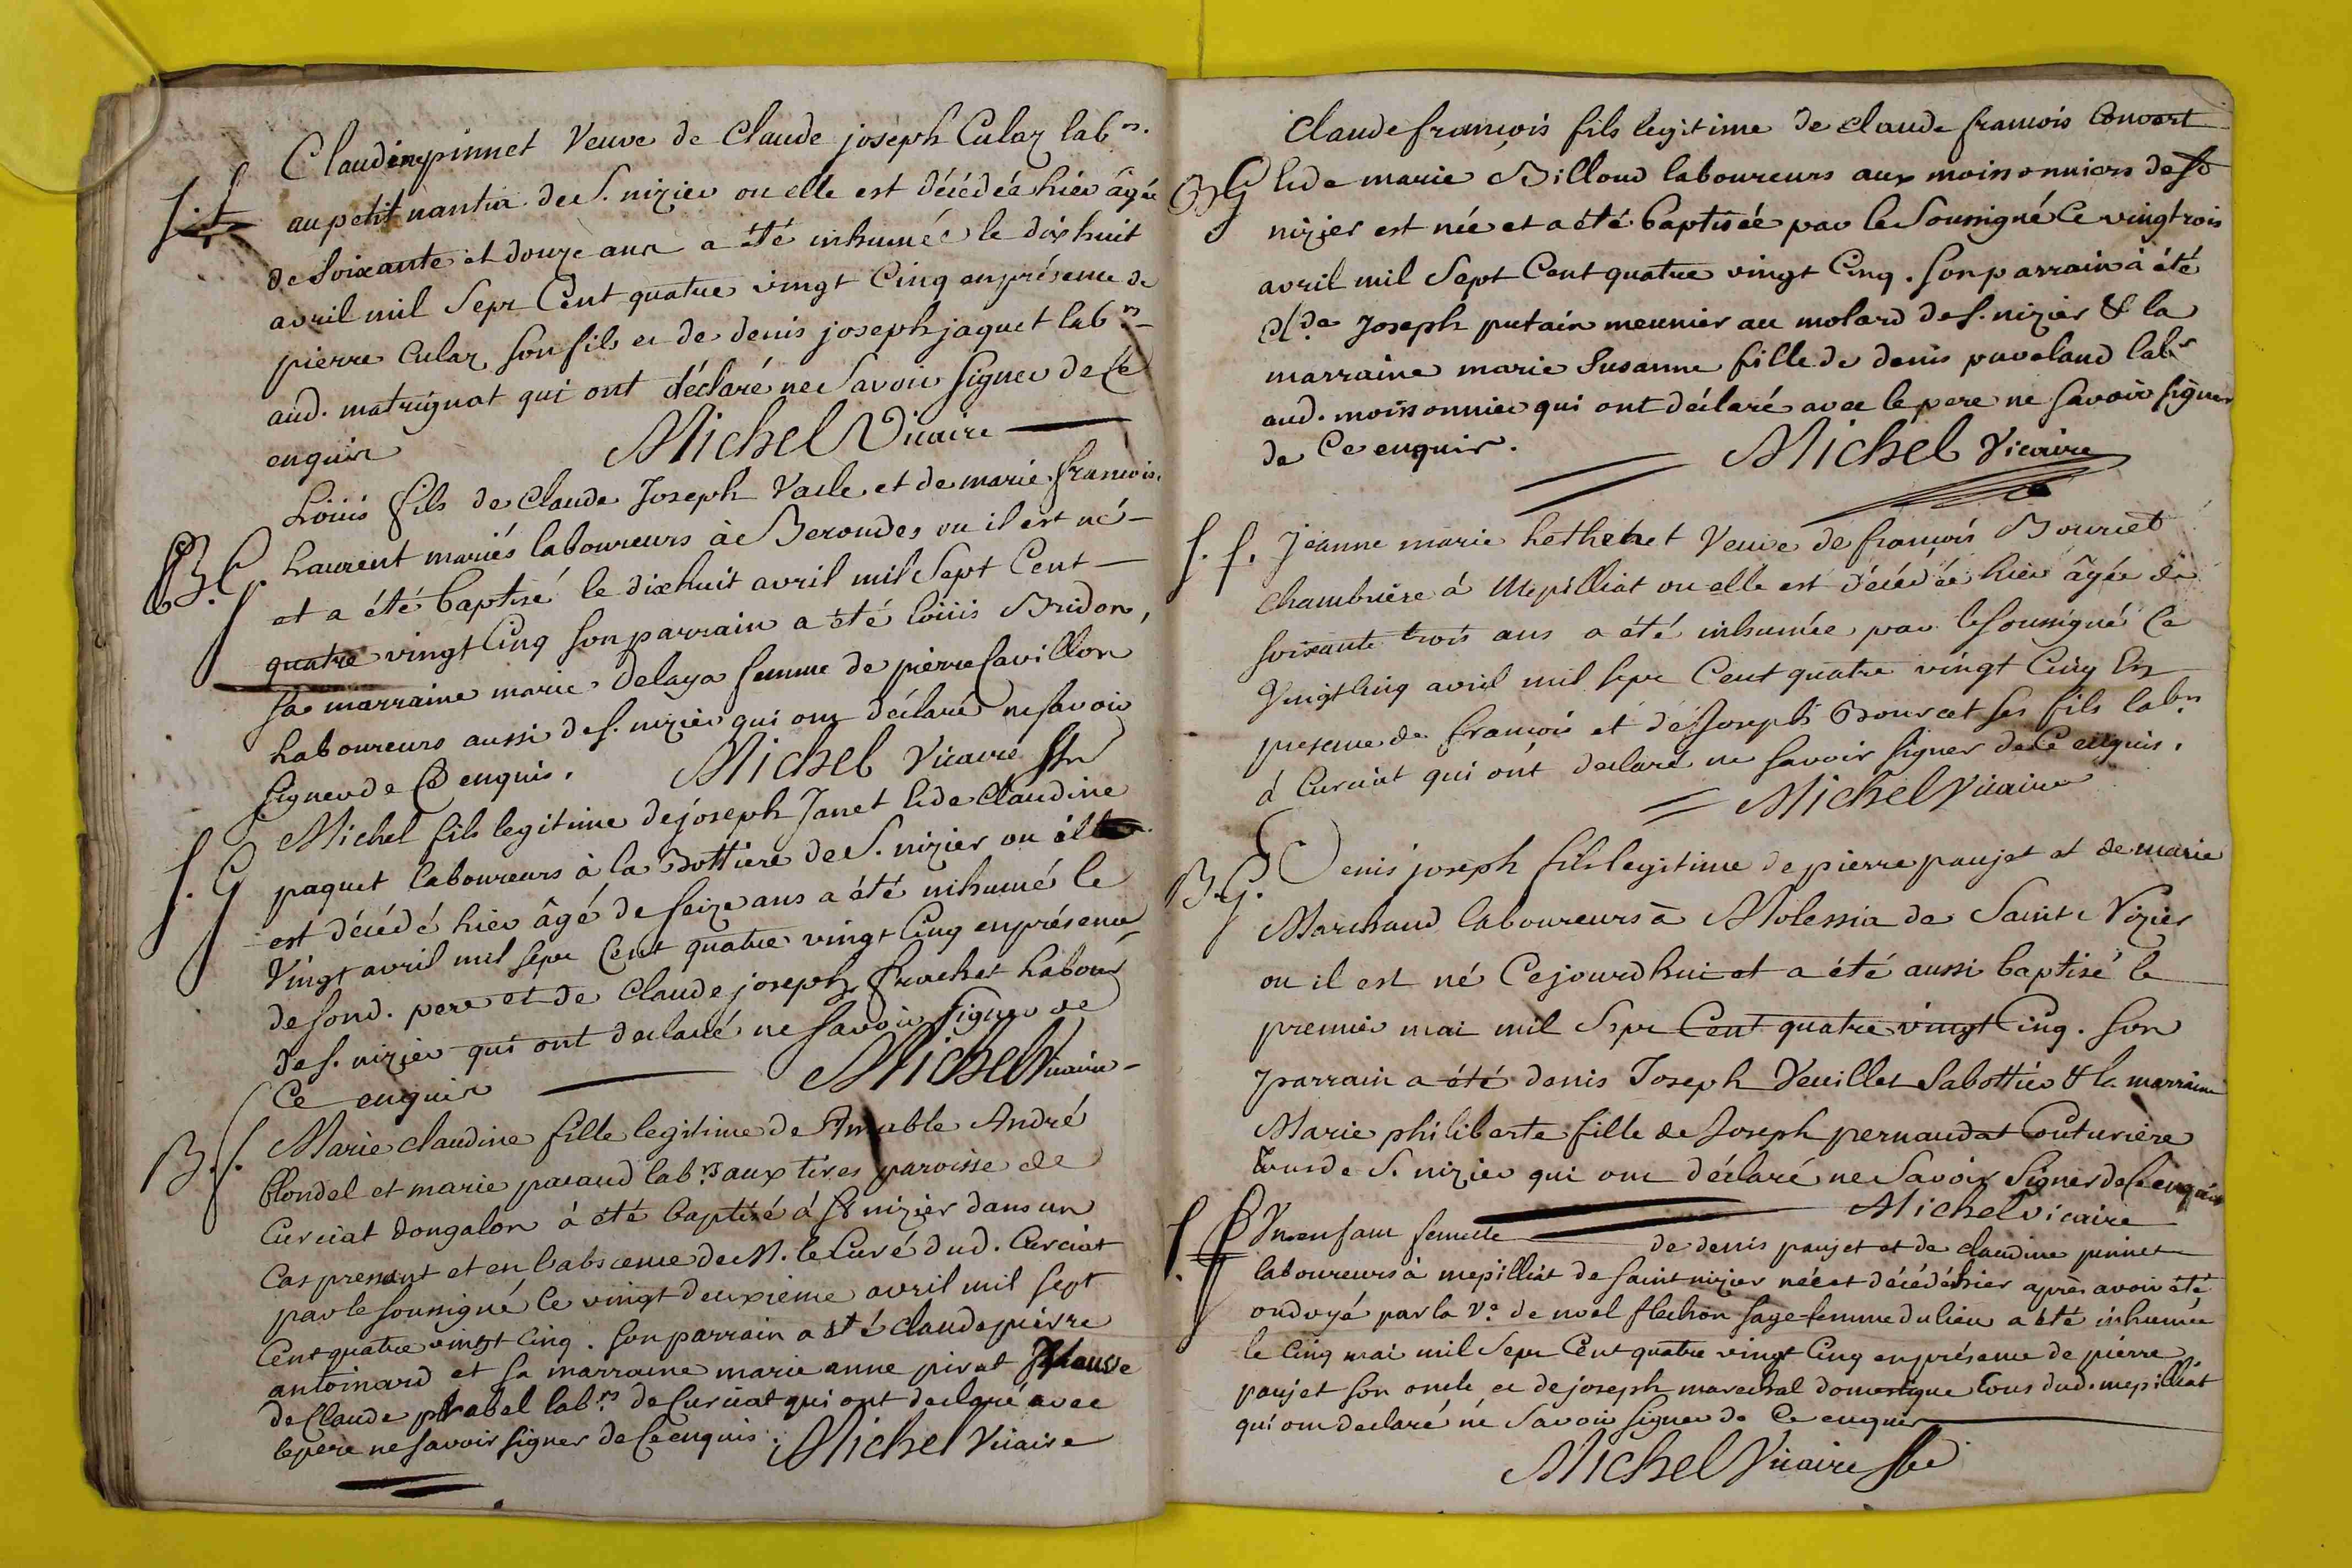 Claudine pinnet Veuve de Claude joseph Culaz labrs.
S. f. au petit nantia de S. nizier ou elle est décédéé hier âgée
de soixante et douze ans a été inhumée le dix huit
avril mil Sept Cent quatre vingt Cinq en présence de
pierre Culaz son fils et de denis joseph jaquet labrs
aud. matrignat qui ont déclaré ne Savoir signer de Ce
enquis Michel Vicaire
Loüis fils de Claude Joseph Vaile et de marie francois.
B. G. Laurent mariés laboureurs à Beroudes ou il est né
et a été baptisé le dixhuit avril mil Sept Cent
quatre vingt Cinq son parrain a été loüis Bridon,
sa marraine marie Delaya femme de pierre Cavillon
Laboureurs aussi de S. nizier qui ont déclaré ne savoir
signer de Ce enquis. Michel Vicaire
Michel fils legitime de joseph Janet & de Claudine
S. G paquet laboureurs à la Bottiere de S. nizier ou il
est décédé hier âgé de seize ans a été inhumé le
Vingt avril mil sept Cent quatre vingt Cinq en présence
de sond. pere et de Claude joseph frachet Labour
de S. nizier qui ont declaré ne savoir signer de
Ce enquis Michel Vicaire
B. f. Marie claudine fille legitime de Amable André
blondel et marie pacaud labrs aux tires paroisse de
Curciat dongalon à été baptisé à St nizier dans un
Cas pressant et en l'absceme de M. le Curé dud. Curciat
par le soussigné le vingt deuxième avril mil sept
Cent quatre vingt Cinq. Son parrain a été claude pierre
antoinard et sa marraine marie anne pirat
de Claude labrs de Curciat qui ont declaré avec
le pere ne savoir signer de Ce enquis. Michel Vicaire
Claude francois fils legitime de claude francois Convert
BG & de marie Billoud laboureurs aux moissonniers de St
nizier est née et a été baptiséé par le Soussigné Ce vingt rois
avril mil Sept Cent quatre vingt Cinq. Son parrain à été
Cl.de Joseph putain meunier au molard de S. nizier & la
marraine marie Susanne fille de denis paveland labr
aud. moissonnier qui ont déclaré avec le pere ne savoir signer
de Ce enquis. Michel Vicaire
S. f. Jeanne marie hethenet Veuve de francois Bourcet
Chambrière à Mepilliat ou elle est décédée hier âgée de
soixante trois ans a été inhumée par le soussigné Ce
Vingt Cinq avril mil sept Cent quatre vingt Cinq En
presence de francois et de Joseph Bourcet ses fils labrs
à Curciat qui ont declaré ne savoir signer de Ce enquis.
Michel Vicaire
B. G. Denis joseph fils legitime de pierre paujet et de marie
Marchand laboureurs à Molessia de Saint Nizier
ou il est né Cejourdhui et a été aussi baptisé le
premier mai mil Sept Cent quatre vingt Cinq. Son
parrain a été denis Joseph Veuillet Sabottier & la marraine
Marie philiberte fille de Joseph pernaudat Couturière
tous de S. nizier qui ont déclaré ne Savoir Signer de Ce enquis
Michel vicaire
S. f. Un enfant femelle de denis paujet et de claudine pinnet
laboureurs à mepilliat de saint nizier née et décédé hier après avoir été
ondoyé par la Ve. de noel flechon sage-femme du lieu a été inhumée
le Cinq mai mil Sept Cent quatre vingt Cinq en présence de pierre
paujet son oncle et de joseph marechal domestique tous dud. mepilliat
qui ont declaré né Savoir signer de Ce enquis
Michel Vicaire